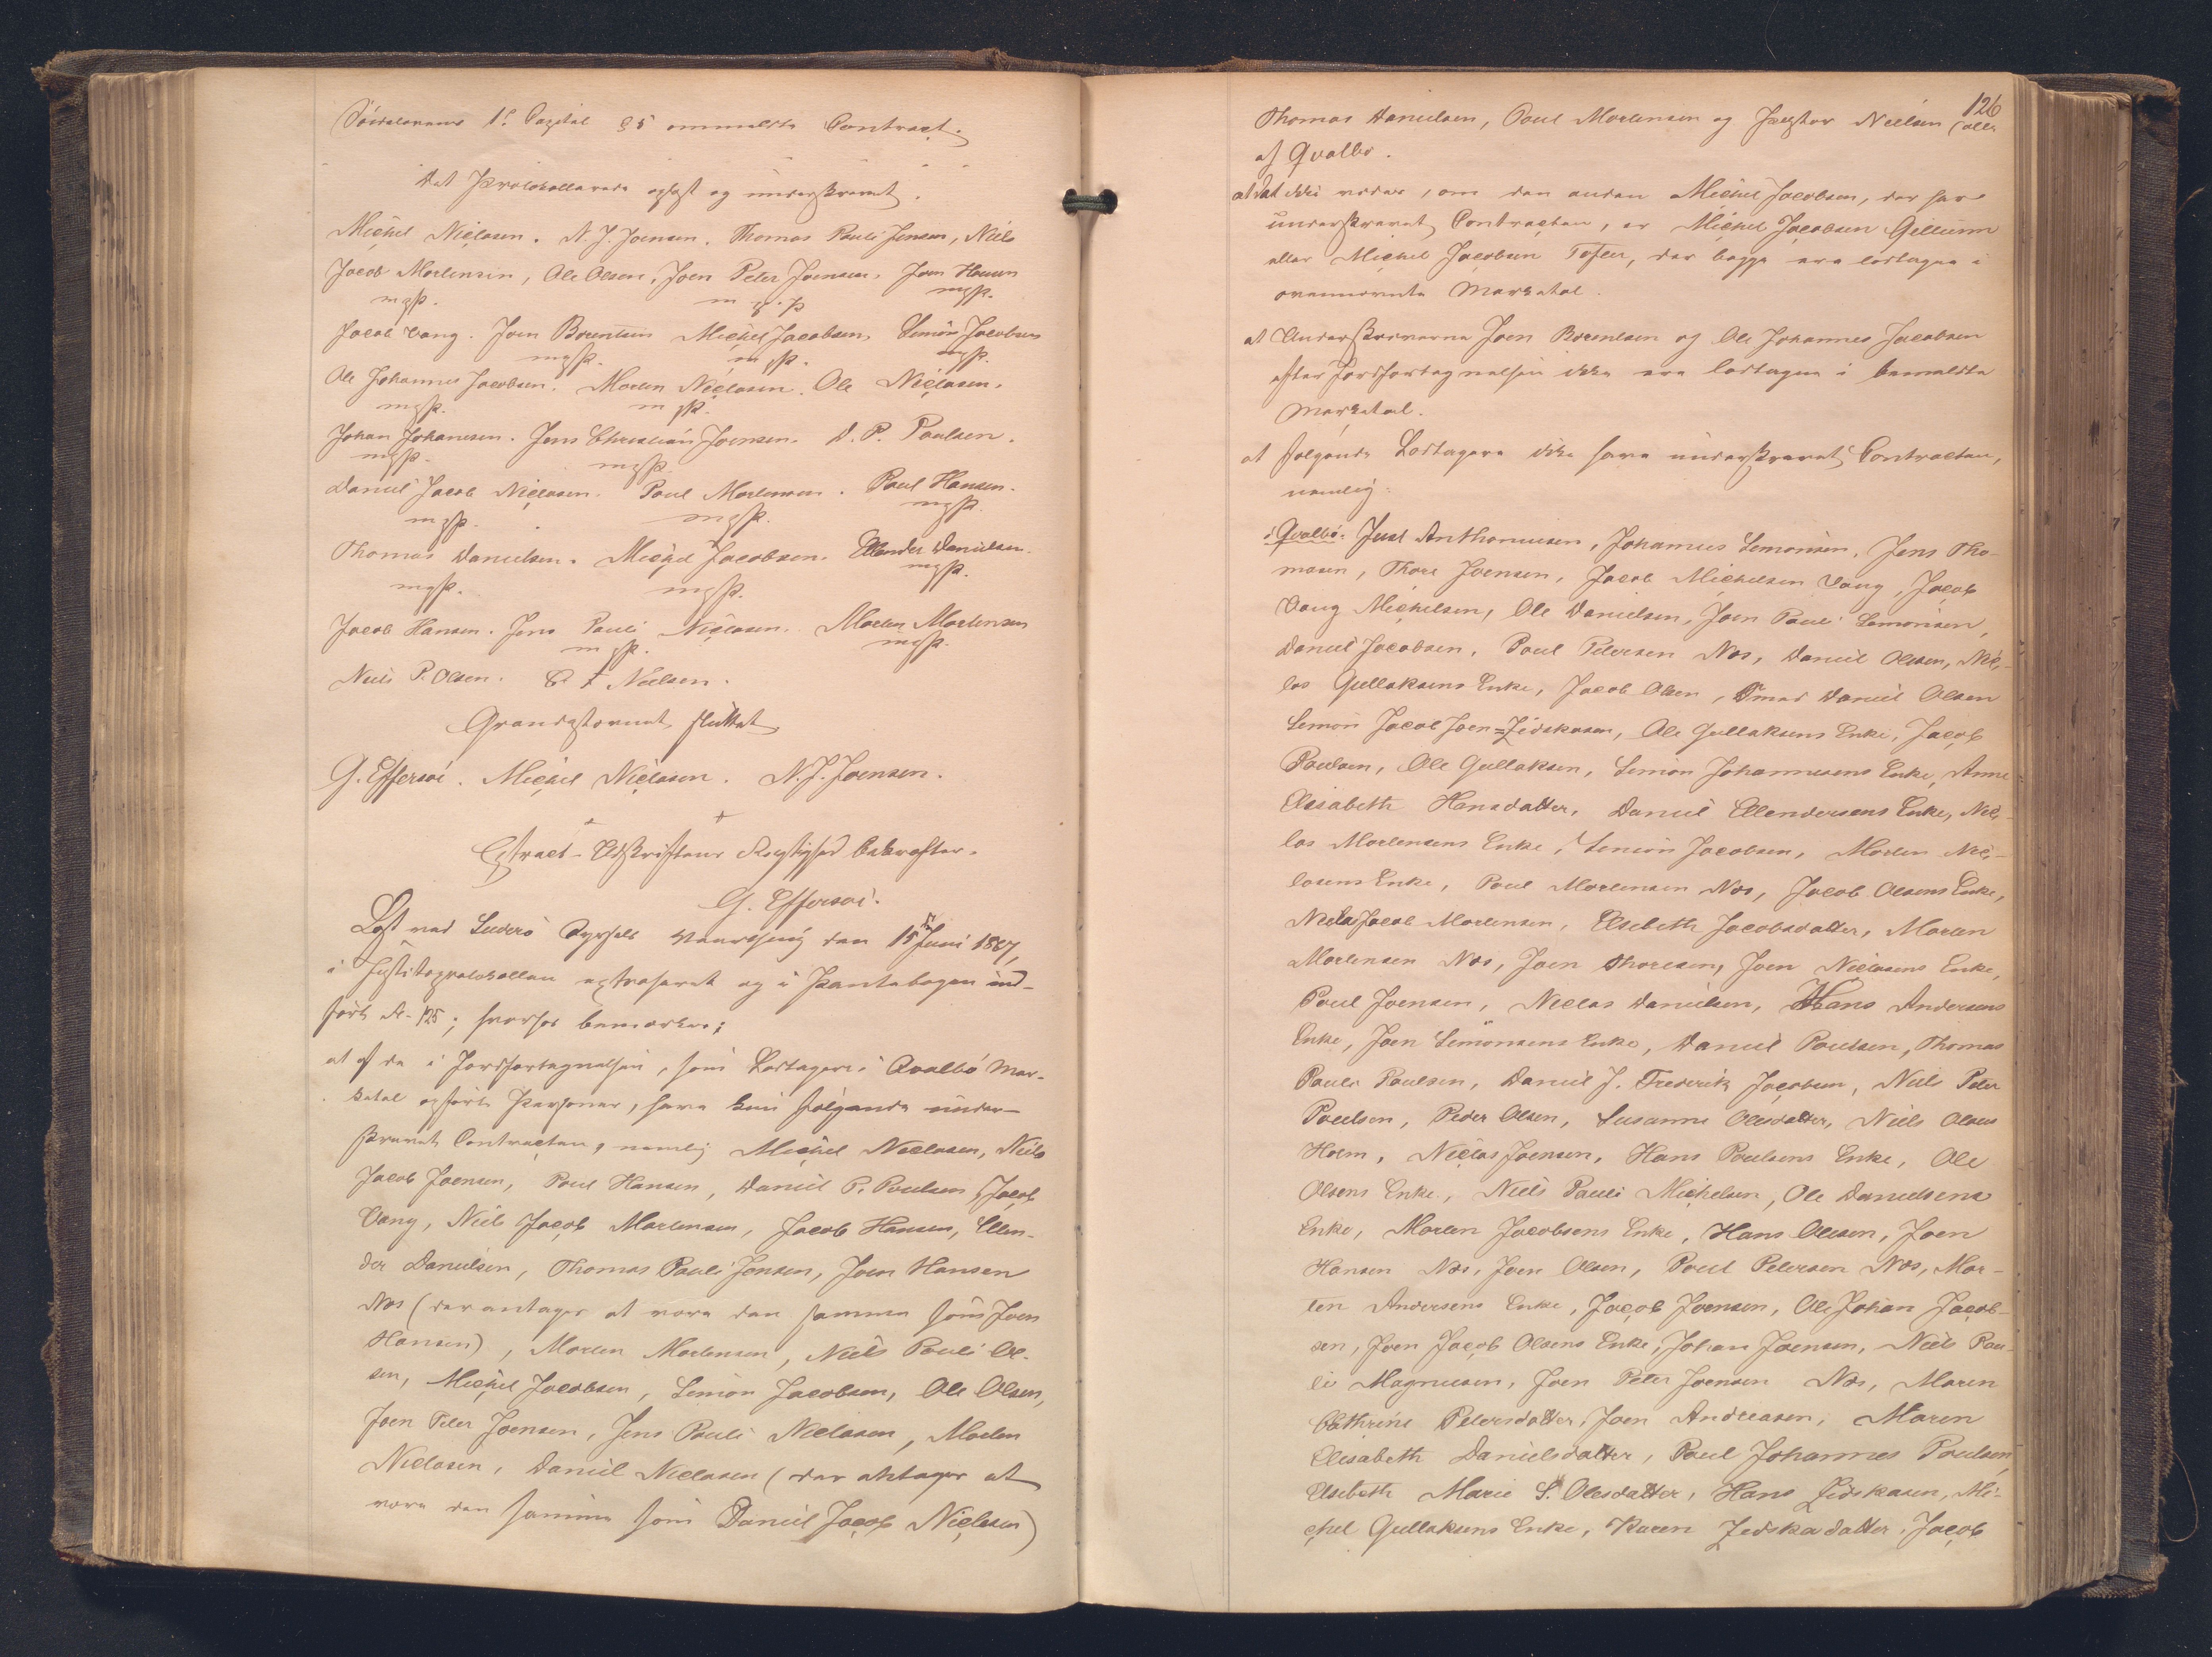 1ste Capital § 5 ommeldte Contract.
Det Protokollerede oplæst og underskrevet.
Michel Niclasen. N. J. Joensen. Thomas Pauli Jensen, Niels
Jacob Mortensen, Ole Olsen. Joen Peter Joensen. Joen Hansen
m. f. P. m. f. P. m. f. P.
Jacob Vang. Joen Berentsen Michel Jacobsen Simon Jacobsen
m. f. P. m. f. P. m. f. P.
Ole Johannes Jacobsen. Morten Niclasen. Ole Niclasen.
m. f. P. m. f. P.
Johan Johanesen. Jens Christian Joensen. D. P. Poulsen.
m. f. P. m. f. P.
Daniel Jacob Niclasen. Poul Mortensen. Poul Hansen.
m. f. P. m. f. P. m. f. P.
Thomas Danielsen. Michel Jacobsen. Ellender Danielsen.
m. f. P. m. f. P. m. f. P.
Jacob Hansen. Jens Pauli Niclasen. Morten Mortensen
m. f. P. m. f. P.
Niels P. Olsen. Nielsen.
Grandestevnet sluttet
G. Effersøe. Michel Niclasen. N. J. Joensen.
Extract-Udskriftens Rigtighed bekræfter.
G. Effersøe.
Læst ved Suderø Syssels Vaarthing den 15de Juni 1867,
i Justitsprotokollen extraheret og i Pantebogen ind-
ført F. 125; hvorhos bemærkes;
at af de i Jordfortegnelsen, som Lodtagere i Qvalbø Mar-
ketal opførte Personer, have kun følgende under-
skrevet Contracten, nemlig Michel Niclasen, Niels
Jacob Joensen, Poul Hansen, Daniel P. Poulsen, Jacob
Vang, Niels Jacob Mortensen, Jacob Hansen, Ellen-
der Danielsen, Thomas Pauli Jensen, Joen Hansen
Næs (der antages at være den samme som Joen
Hansen), Morten Mortensen, Niels Pauli Ol-
sen, Michel Jacobsen, Simon Jacobsen, Ole Olsen,
Joen Peter Joensen, Jens Pauli Niclasen, Morten
Niclasen, Daniel Niclasen (der antages at
være den samme som Daniel Jacob Niclasen)
126
Thomas Danielsen, Poul Mortensen og Joen Nielsen (alle
af Qvalbø.
at det ikke vides, om den anden Michel Jacobsen, der har
underskrevet Contracten, er Michel Jacobsen Gillium
eller Michel Jacobsen Tofter, der begge ere lodtagne i
ovennævnte Marketal.
at Underskriverne Joen Berentsen og Ole Johannes Jacobsen
efter Jordfortegnelsen ikke ere lodtagne i bemeldte
Marketal.
at følgende Lodtagere ikke have underskrevet Contracten,
nemlig:
i Qvalbø: Just Anthoniusen, Johannes Simonsen, Jens Tho-
masen, Thore Joensen, Jacob Michelsen Vang, Jacob
Vang Michelsen, Ole Danielsen, Joen Pauli Simonsen,
Daniel Jacobsen, Poul Petersen Næs, Daniel Olesen, Nic-
las Gullaksens Enke, Jacob Olsen, Daniel Olsen
Simon Jacob Joen=Zidskasen, Ole Gullaksens Enke, Jacob
Poulsen, Ole Gullaksen, Simon Johannesens Enke, Anne
Elisabeth Hansdatter, Daniel Ellendersens Enke, Nic-
las Mortensens Enke, Simon Jacobsen, Morten Nic-
lasens Enke, Poul Mortensen Næs, Jacob Olsens Enke,
Niels Jacob Mortensen, Elsebeth Jacobsdatter, Morten
Mortensen Næs, Joen Thoresen, Joen Niclasens Enke,
Poul Joensen, Niclas Danielsen, Hans Andersens
Enke, Joen Simonsens Enke, Daniel Poulsen, Thomas
Pauli Poulsen, Daniel J. Frederik Jacobsen, Niels Peter
Poulsen, Peder Olsen, Susanne Olesdatter, Niels Olsens
Holm, Niclas Joensen, Hans Poulsens Enke, Ole
Olsens Enke, Niels Pauli Michelsen, Ole Danielsens
Enke, Morten Jacobsens Enke, Hans Olesen, Joen
Hansen Næs, Joen Olsen, Poul Petersen Næs, Mor-
ten Andersens Enke, Jacob Joensen, Ole Johan Jacob-
sen, Joen Jacob Olsens Enke, Johan Joensen, Niels Pau-
li Magnusen, Joen Peter Joensen Næs, Maren
Cathrine Petersdatter, Joen Andreasen, Maren
Elisabeth Danielsdatter, Poul Johannes Poulsen,
Elsebeth Marie S. Olesdatter, Hans Zidskasen, Mi-
chel Gullaksens Enke, Karen Zidskadatter, Jacob